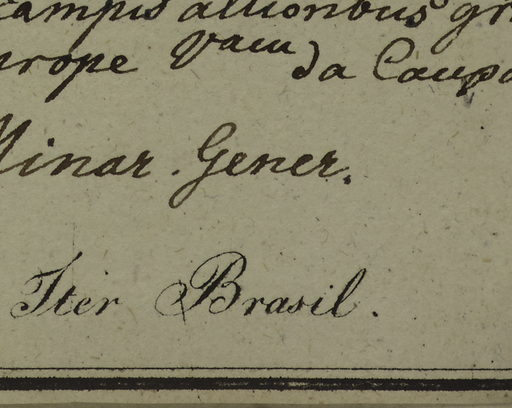 campis altioribus gr
prope Vau
da Caupa
Minar. Gener.
Iter Brasil.